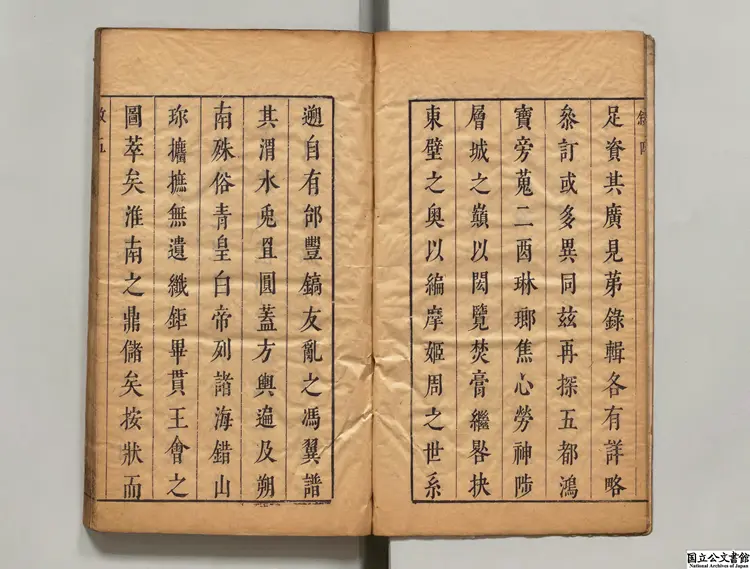 足資其廣見第錄輯各有詳略
叅訂或多異同玆再探五都鴻
寶旁蒐二酉琳瑯焦心勞神陟
層城之巔以閎覽焚膏繼晷抉
東壁之奥以編摩姬周之世系
遡自有邰豐鎬友亂之馮翼譜
其渭水兎罝圓蓋方輿遍及朔
南殊俗青皇白帝列諸海錯山
珎攟摭無遺纖鉅畢貫王會之
圖萃矣淮南之鼎儲矣按狀而
国立公文書館
National Archives of Japan